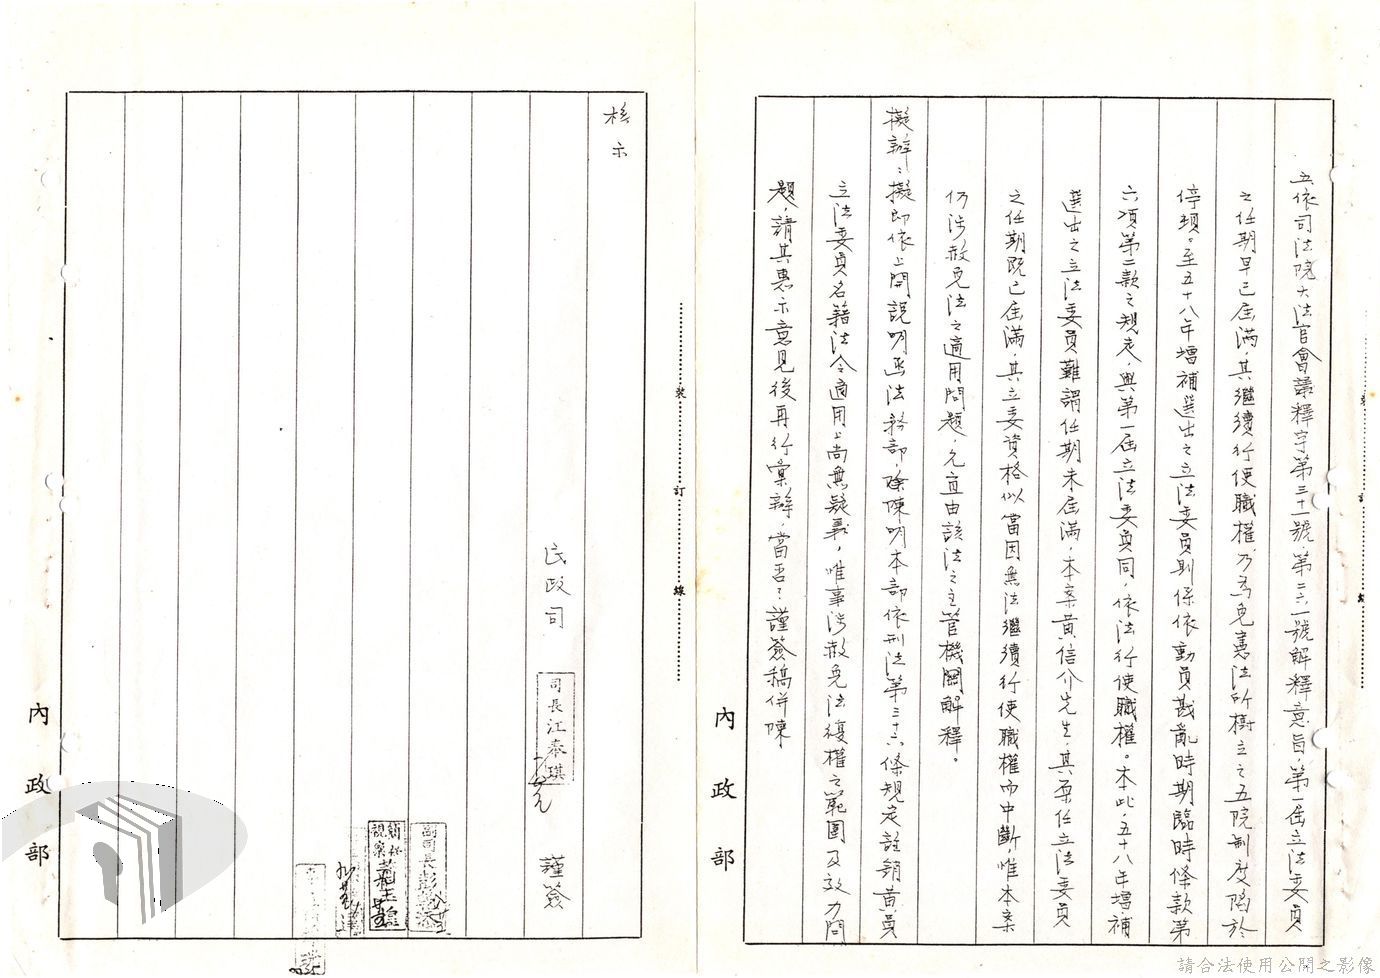 五依司法院大法官會議釋字第三十一號、第二六一號解釋意旨，第一屆立法委員
之任期早已屆滿，其繼續行使職權，乃為免憲法所樹立之五院制度陷於
停頓。至五十八年增補選出之立法委員則係依動員戡亂時期臨時條款第
六項第二款之規定，與第一屆立法委員同，依法行使職權。本此，五十八年增補
選出之立法委員難謂任期未屆滿，本案黃信介先生，其原任立法委員
之任期既已屆滿，其立委資格似當因無法繼續行使職權而中斷，惟本案
仍涉赦免法之適用問題，允宜由該法之主管機關解釋。
擬辦：擬即依上開說明函法務部，除陳明本部依刑法第三十六條規定註銷黃員
立法委員名籍法令適用上尚無疑義，唯事涉赦免法復權之範圍及效力問
題，請其惠示意見後再行彙辦，當否？謹簽稿併陳
內政部
裝
訂
線
核示
民政司
司長江奉琪
謹簽
副司長
內政部
請合法使用公開之影像